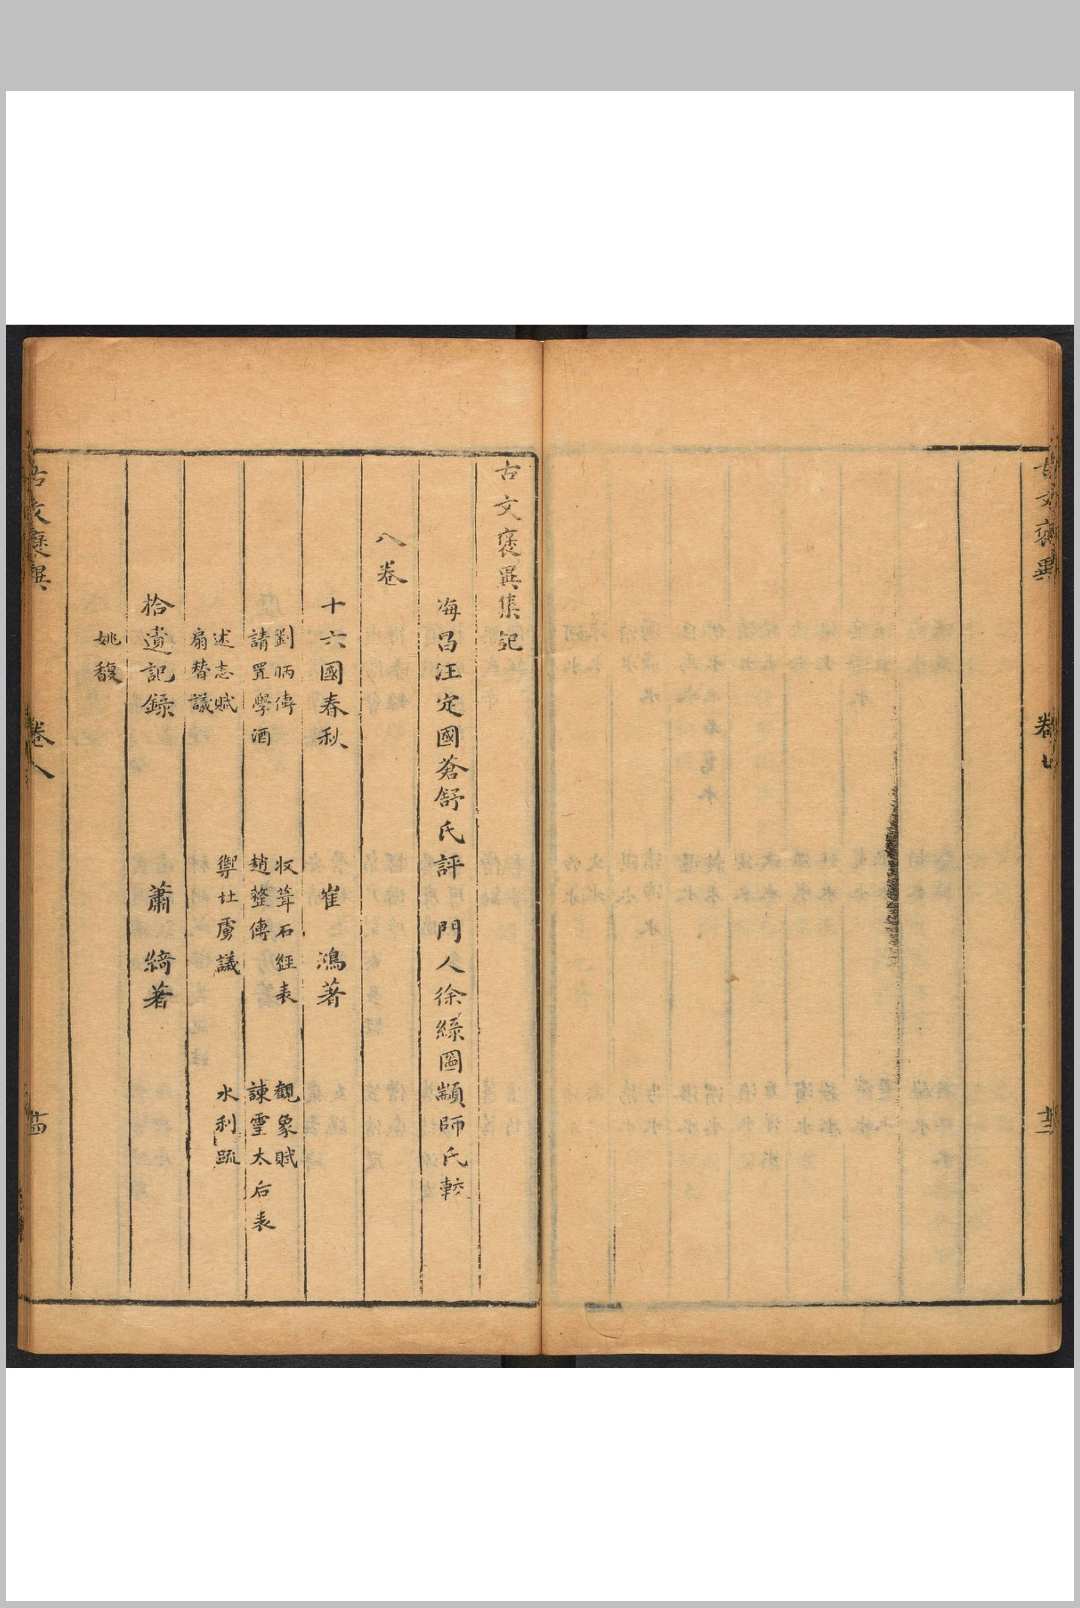 古文褒異
卷七
廿三
古文褒異集記
海昌汪定國蒼舒氏評 門人徐繇圖顓師氏較
八卷
十六國春秋 崔鴻著
劉昞傳 收葺石經表 觀象賦
請置學酒 趙整傳 諫靈太后表
述志賦 禦仕虜議 水利疏
扇替議
拾遺記錄 蕭綺著
姚馥
古文褒異
卷八
廿四